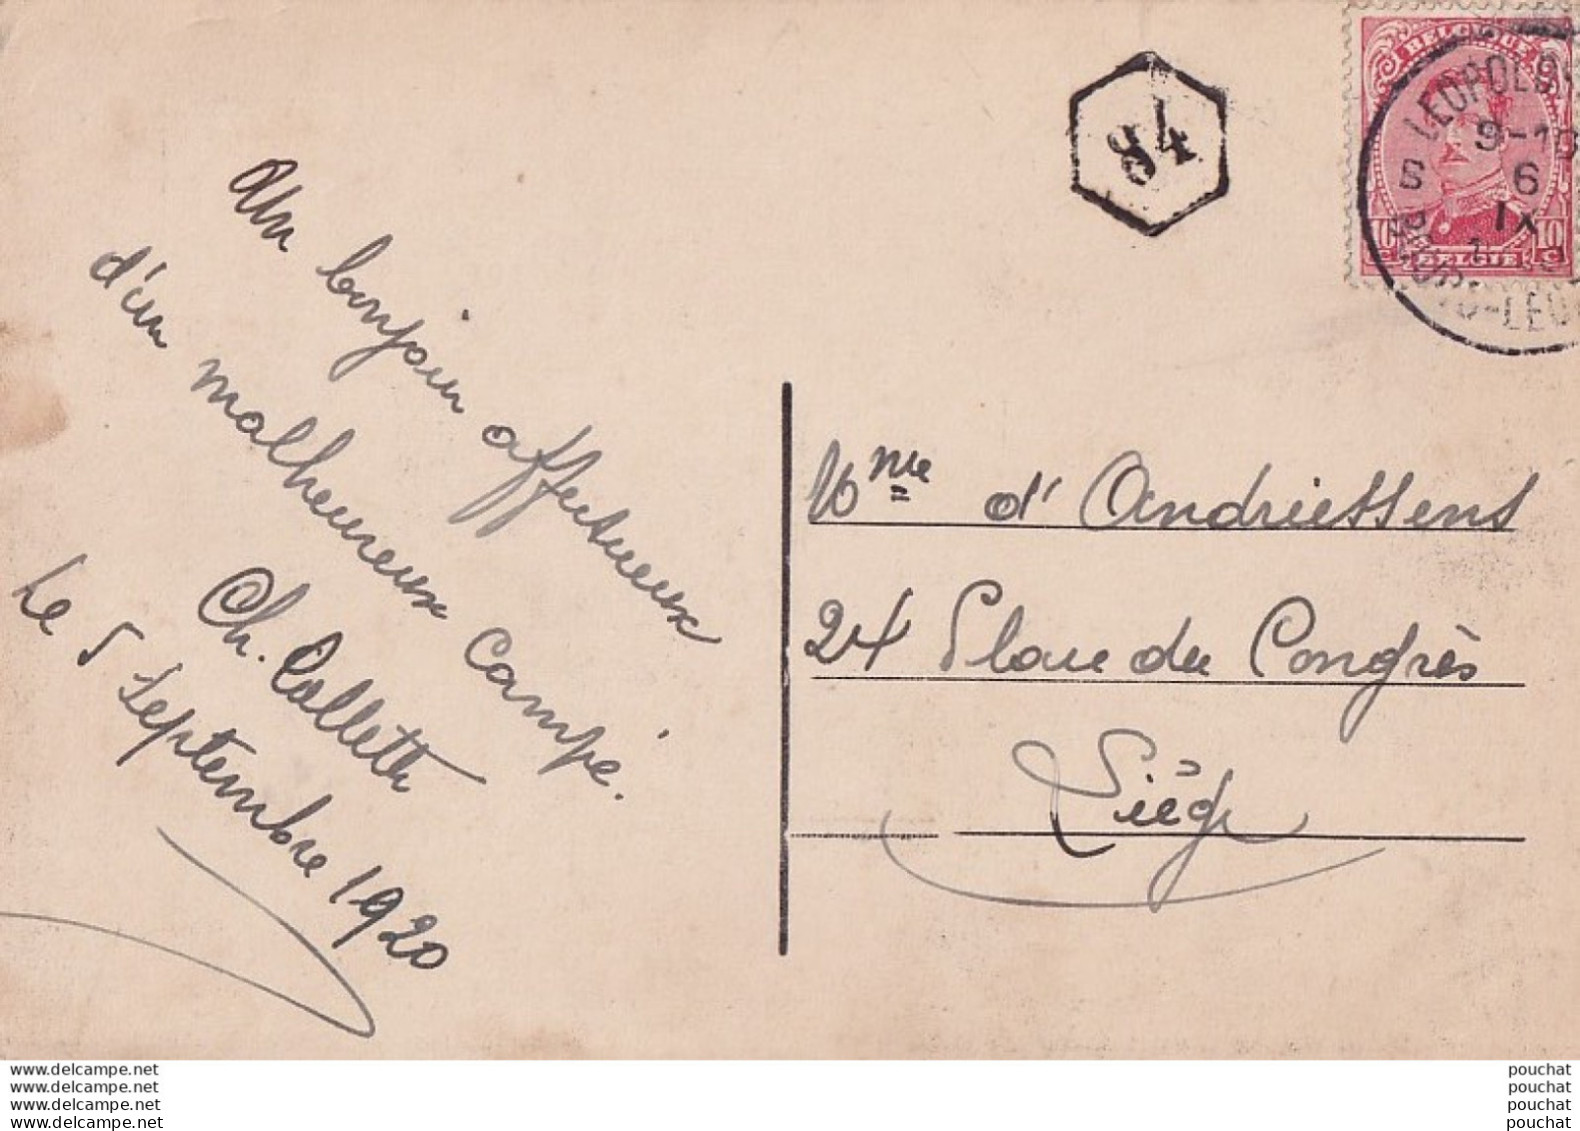 Un bonjour affectueux
d'un malheureux campé.
Ch. Collette
Le 5 Septembre 1920
84
BELGIQUE
10c 10c
BELGIË
LEOPOLDS
9-10
S 6
IX
BOURG-LEO
Mme d'Andriessens
24 Place du Congrès
Liège
www.delcampe.net
www.delcampe.net
www.delcampe.net
www.delcampe.net
pouchat
pouchat
pouchat
pouchat